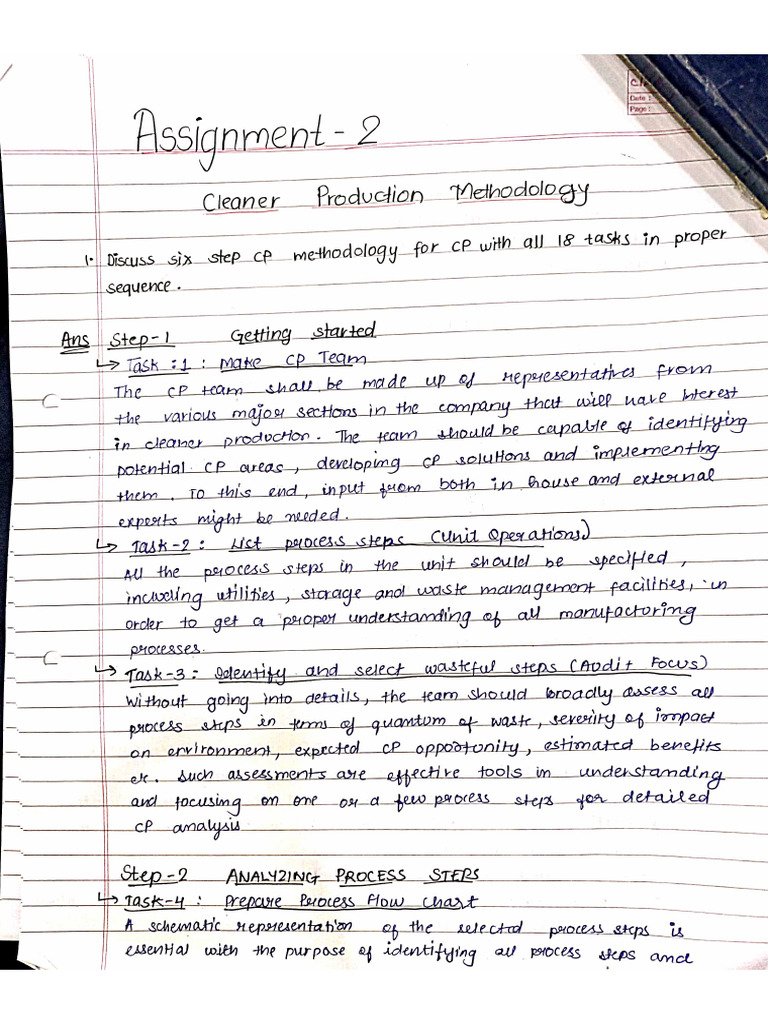 Date :
Page :
Assignment - 2
Cleaner Production Methodology
1. Discuss six step CP methodology for CP with all 18 tasks in proper
sequence.
Ans Step-1 Getting started
↳ Task : 1 : Make CP Team
The CP team shall be made up of representatives from
the various major sections in the company that will have interest
in cleaner production. The team should be capable of identifying
potential CP areas, developing CP solutions and implementing
them. To this end, input from both in house and external
experts might be needed.
↳ Task-2 : List process steps (Unit Operations)
All the process steps in the unit should be specified,
including utilities, storage and waste management facilities, in
order to get a proper understanding of all manufactoring
processes.
↳ Task-3 : Identify and select wasteful steps (Audit Focus)
Without going into details, the team should broadly assess all
process steps in terms of quantum of waste, severity of impact
on environment, expected CP opportunity, estimated benefits
etc. Such assessments are effective tools in understanding
and focusing on one or a few process steps for detailed
CP analysis
Step-2 ANALYZING PROCESS STEPS
↳ Task-4 : Prepare Process Flow Chart
A schematic representation of the selected process steps is
essential with the purpose of identifying all process steps and